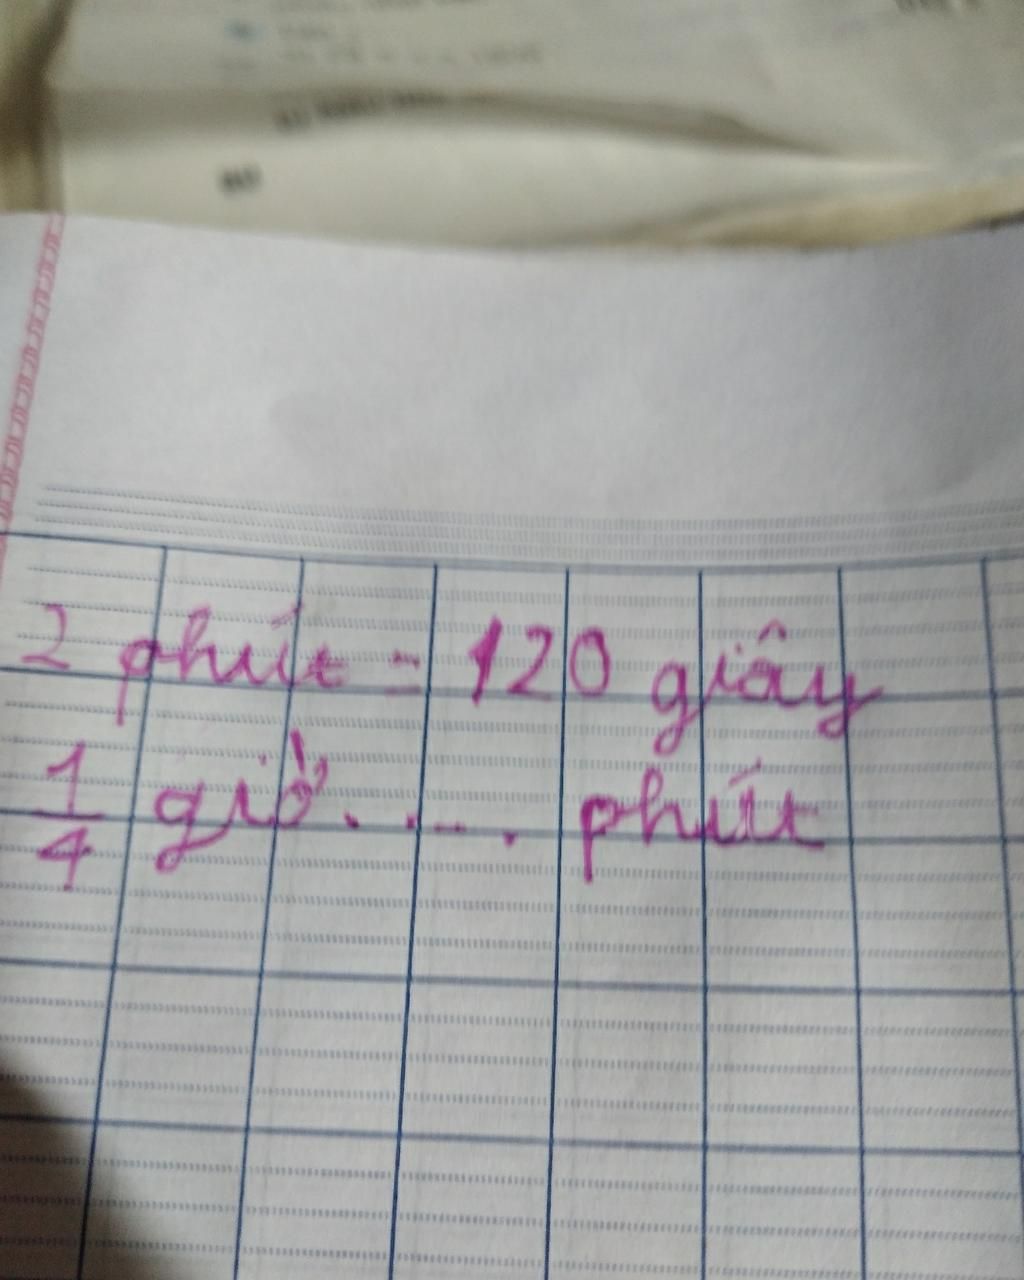 2 phút = 120 giây
1/4 giờ . ... . phút